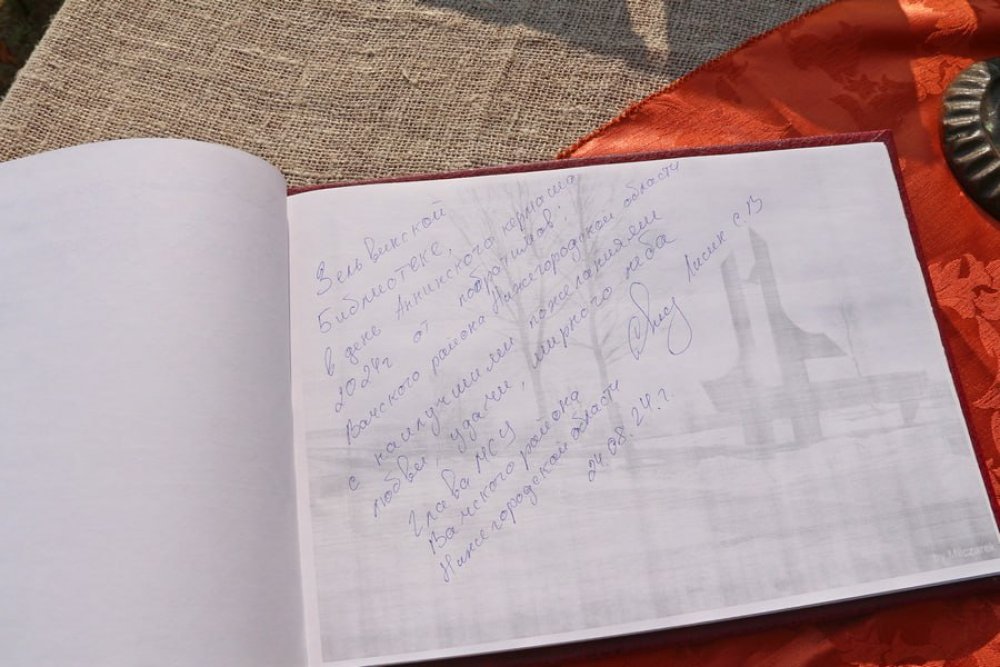 Зельвинской
Библиотеке,
в день Аннинского кермаша
2024г от побратимов:
Вачского района Нижегородской области
с наилучшими пожеланиями
любви, удачи, мирного неба
Глава МСУ
Вачского района
Нижегородской области
Лисик С.В
24.08.24.г.
Milczarek